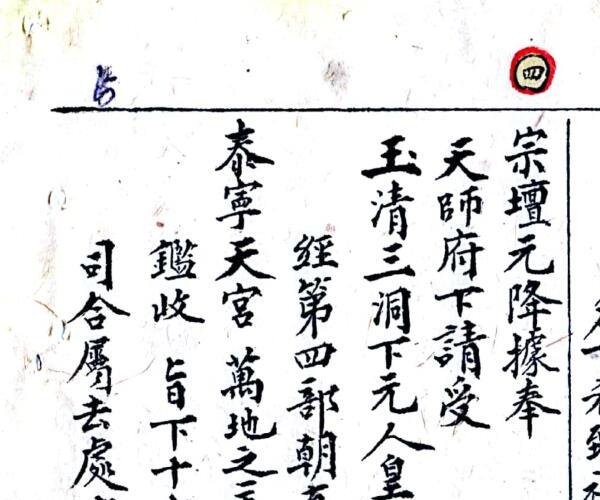 四
宗壇元降據奉
天師府下請受
玉清三洞下元人皇
經第四部朝
泰寧天宮 萬地之
鑑收 旨下十
司合屬去處